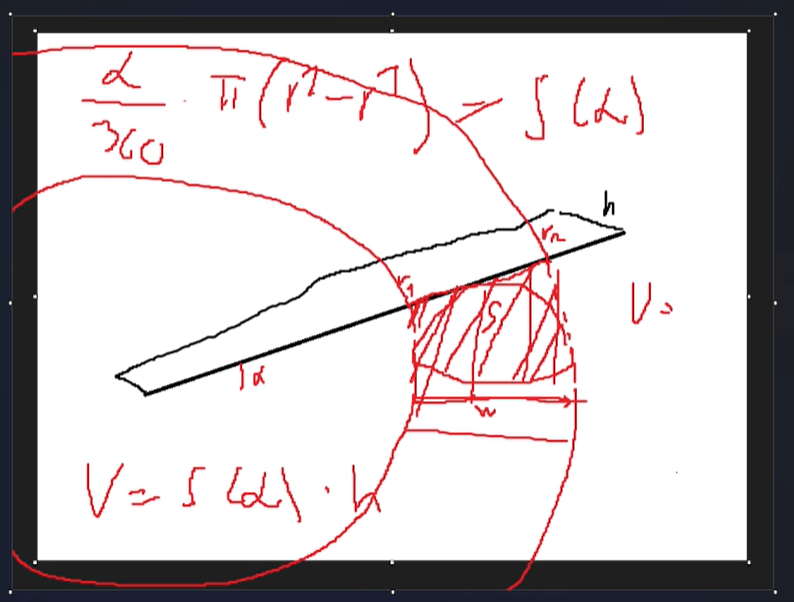 α/360 · π(r² - r²) = S(α)
h
r₂
r₁
S
V =
α
w
V = S(α) · h